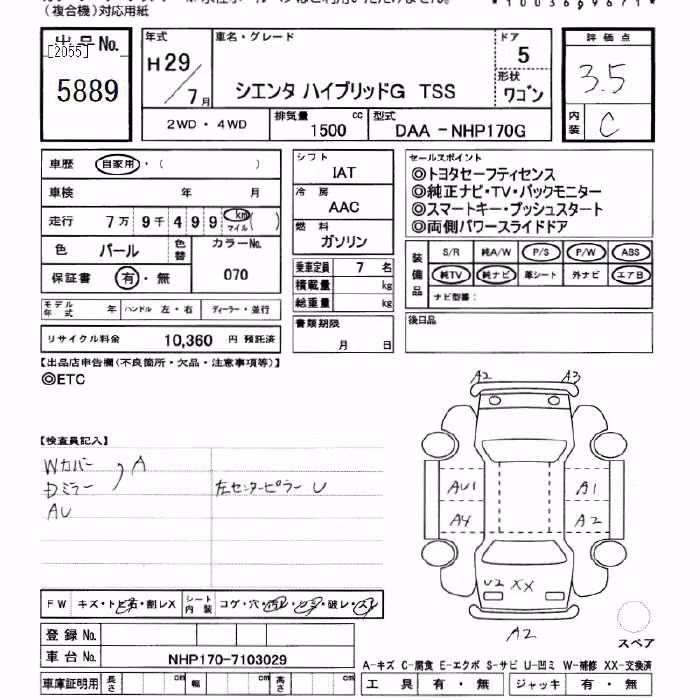 （複合機）対応用紙
*10036696 71*
出品No.
[2055]
5889
年式
H29/7月
車名・グレード
シエンタ ハイブリッドG TSS
ドア
5
形状
ワゴン
評価点
3.5
内装
C
2WD・4WD
排気量
1500 cc
型式
DAA -NHP170G
車歴 自家用・( )
車検 年 月
走行 7万 9千 4 9 9 km マイル ( )
色 パール
色替
カラーNo.
070
保証書 有・無
モデル年式 年
ハンドル 左・右
ディーラー・並行
リサイクル料金 10,360 円 預託済
シフト
IAT
冷房
AAC
燃料
ガソリン
乗車定員 7 名
積載量 kg
総重量 kg
書類期限
月 日
セールスポイント
◎トヨタセーフティセンス
◎純正ナビ・TV・バックモニター
◎スマートキー・プッシュスタート
◎両側パワースライドドア
装備品
S/R 純A/W P/S P/W ABS
純TV 純ナビ 革シート 外ナビ エアB
ナビ型番：
後日品
【出品店申告欄(不良箇所・欠品・注意事項等)】
◎ETC
【検査員記入】
Wカバー
Dミラー
, A
AU
左センターピラー U
A2
A3
AU1
A1
A4
A2
U2 XX
A2
スペア
FW キズ・トビ石・割レX
シート内装
コゲ・穴・汚レ・シミ・破レ・スレ
登録No.
車台No. NHP170-7103029
車庫証明用 長さ cm 幅 cm 高さ cm
A-キズ C-腐食 E-エクボ S-サビ U-凹ミ W-補修 XX-交換済
工具 有・無 ジャッキ 有・無